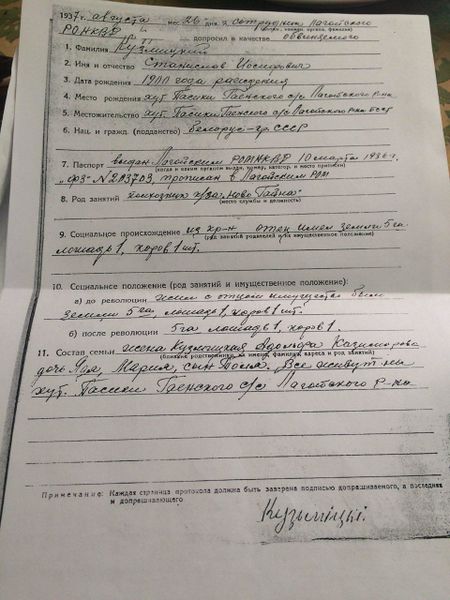 1937г. августа мес. 26 дня. Я, сотрудник Лагойского
(фамил., наимен. органа, фамилия)
РОНКВД допросил в качестве обвиняемого
1. Фамилия Кузмицкий
2. Имя и отчество Станислов Иосифович
3. Дата рождения 1900 года рождения
4. Место рождения хут. Пасики Гаенского с/с Лагойского р-на
5. Местожительство хут. Пасики Гаенского с/с Лагойского р-на БССР
6. Нац. и гражд. (подданство) белорус-гр. СССР
7. Паспорт выдан Лагойским РОМНКВД 10 марта 1936 г.
(когда и каким органом выдан, номер, категор. и место приписки)
№ 203703, прописан в Лагойским РОМ
8. Род занятий колхозник к/за "Ново Гайна"
(место службы и должность)
9. Социальное происхождение из кр-н отец имел земли 5 га
(род занятий родителей и их имущественное положение)
лошадь 1, коров 1 шт.
10. Социальное положение (род занятий и имущественное положение):
а) до революции жил с отцом имущества было
земли 5 га, лошадь 1, коров 1 шт.
б) после революции 5 га лошадь 1, коров 1.
11. Состав семьи жена Кузмицкая Адольфа Казимировна
(близкие родственники, их имена, фамилии, адреса и род занятий)
дочь Мария, сын Все живут на
хут. Пасики Гаенского с/с Лагойского р-на
Примечание: Каждая страница протокола должна быть заверена подписью допрашиваемого, а последняя
и допрашивающего.
Кузьміцкі.